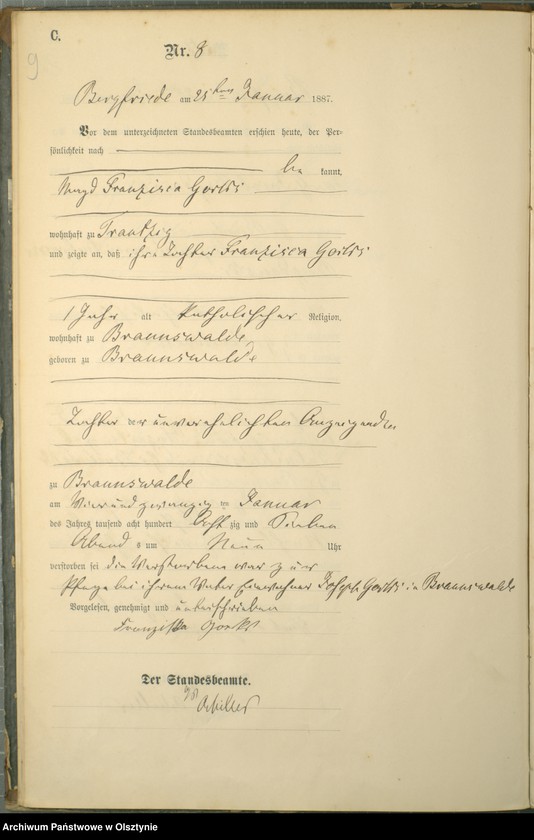 C.
9
Nr. 8
Bergfriede am 25ten Januar 1887.
Vor dem unterzeichneten Standesbeamten erschien heute, der Per-
sönlichkeit nach
be kannt,
Magd Franzisca
wohnhaft zu Trautzig
und zeigte an, daß ihre Tochter Franzisca
1 Jahr alt katholischer Religion,
wohnhaft zu Braunswalde
geboren zu Braunswalde
Tochter der unverehelichten Anzeigenden
zu Braunswalde
am Vierundzwanzigten Januar
des Jahres tausend acht hundert Acht zig und Sieben
Abend s um Neun Uhr
verstorben sei die Verstorbene war zur
Pflege bei ihrem Vater Einwohner Joseph in Braunswalde
Vorgelesen, genehmigt und unterschrieben
Franziska
Der Standesbeamte.
Archiwum Państwowe w Olsztynie